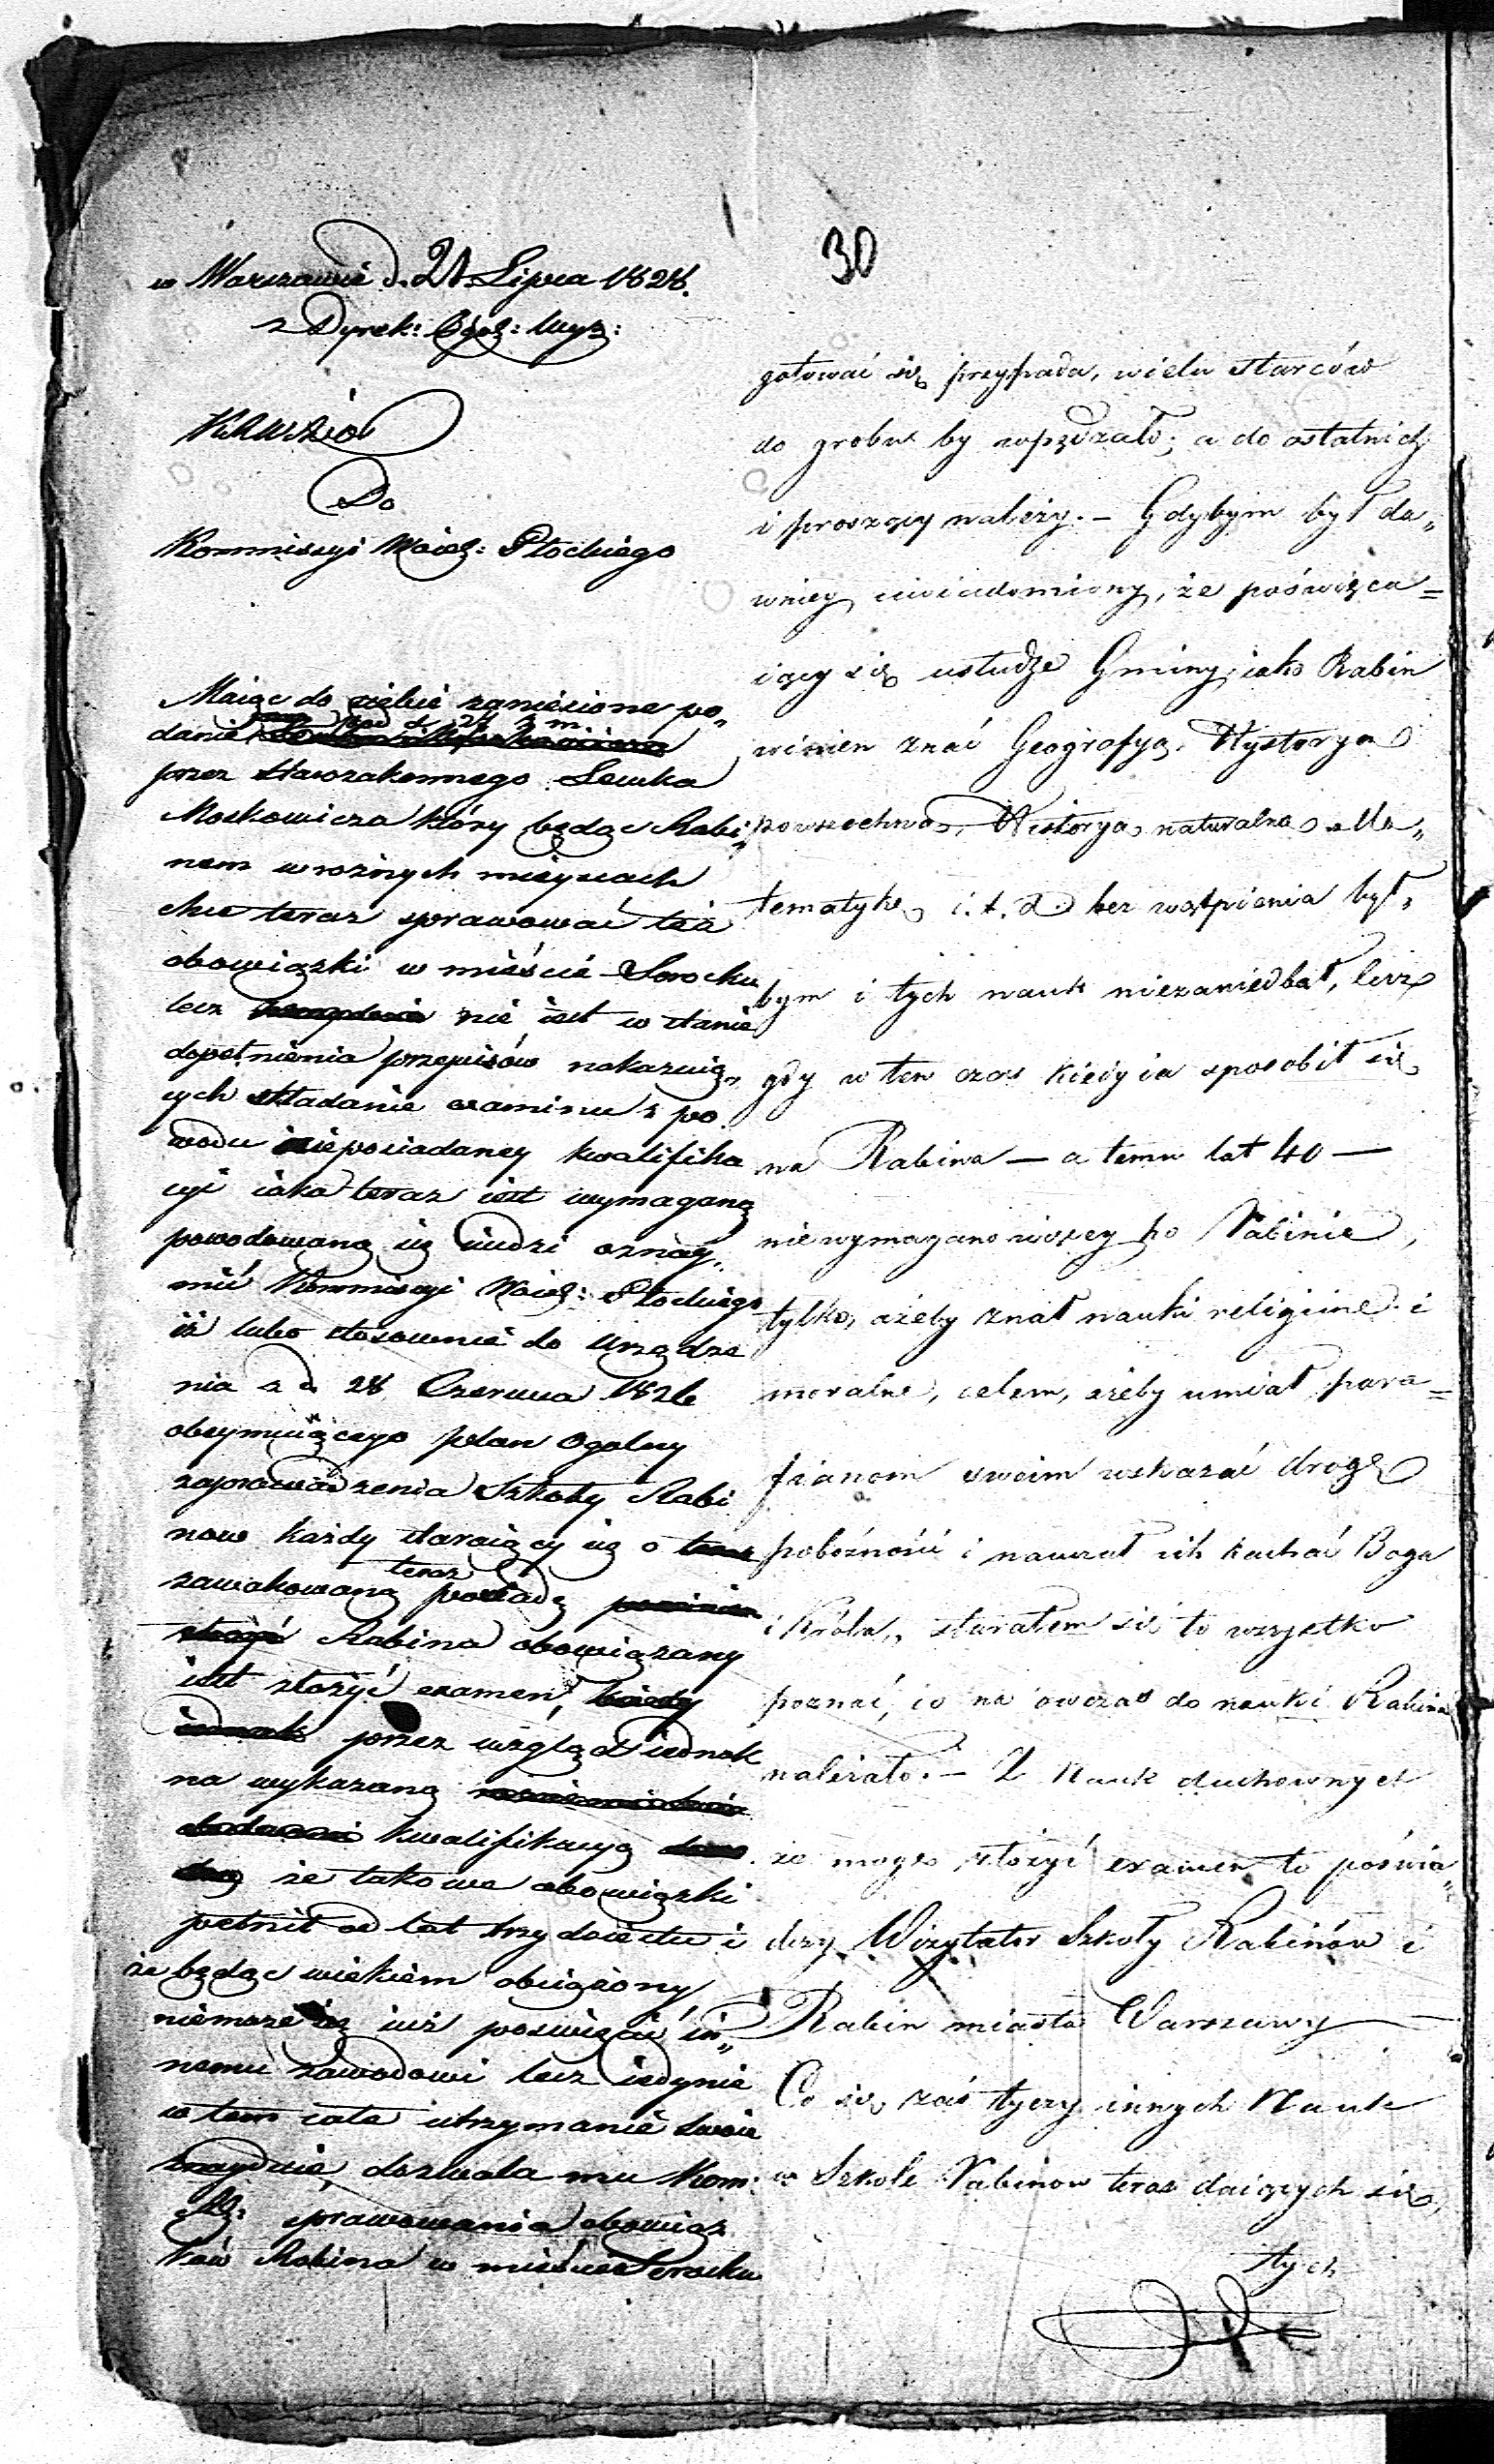 30
w Warszawie d. 21 Lipca 1828.
z Dyrek: Ogól: Wyz:
Do
Kommissyi Woiew: Płockiego
Maiąc do siebie zaniesione po„
danie pod d. 21 b. m.
przez starozakonnego Lewka
Moskowicza który będąc Rabi„
nem w rożnych mieyscach
chce teraz sprawować też
obowiązki w mieście Serocku
lecz nie iest w stanie
dopełnienia przepisów nakazuią„
cych składanie examinu z po„
wodu nieposiadaney kwalifika
cyi iaka teraz iest wymaganą
powodowaną się widzi oznay„
mić Kommissyi Woiew: Płockiego
iż lubo stosownie do Urządze
nia z d. 28 Czerwca 1826
obeymuiącego plan Ogolny
zaprowadzenia Szkoły Rabi
now każdy staraiący się o
zawakowaną teraz posadę
Rabina obowiązany
iest złożyć examen,
przez wzgląd iednak
na wykazaną
kwalifikacyą
że takowe obowiązki
pełnił od lat trzydziestu i
że będąc wiekiem obciążony
niemoże się iuż poswięcić in„
nemu zawodowi lecz iedynie
w tem całe utrzymanie swoie
znayduie, dozwala mu Kom:
Rz: sprawowania obowiąz
ków Rabina w mieście Serocku
gotować się przypada, wielu starców
do grobu by wpędzało; a do ostatnich
i proszący należy. – Gdybym był da„
wniey uwiadomiony, że poświęca=
iący się usłudze Gminy iako Rabin
winien znać Geografyą, Hystoryą
powszechną, Historyą naturalną, Ma„
tematykę i. t. d. bez wątpienia był„
bym i tych nauk niezaniedbał, lecz
gdy w ten czas kiedy ia sposobił się
na Rabina – a temu lat 40 –
niewymagano więcey po Rabinie,
tylko, ażeby znał nauki religiine i
moralne, celem, ażeby umiał para=
fianom swoim wskazać drogę
pobożności i nauczał ich kochać Boga
i Króla, starałem się to wszystko
poznać, co na owczas do nauki Rabina
należało. – Z Nauk duchownych
że mogę złożyć examen to poświa„
dczy Wizytator Szkoły Rabinów i
Rabin miasta Warszawy –
Co się zaś tyczy innych Nauk
w Szkole Rabinow teraz daiących się,
tych